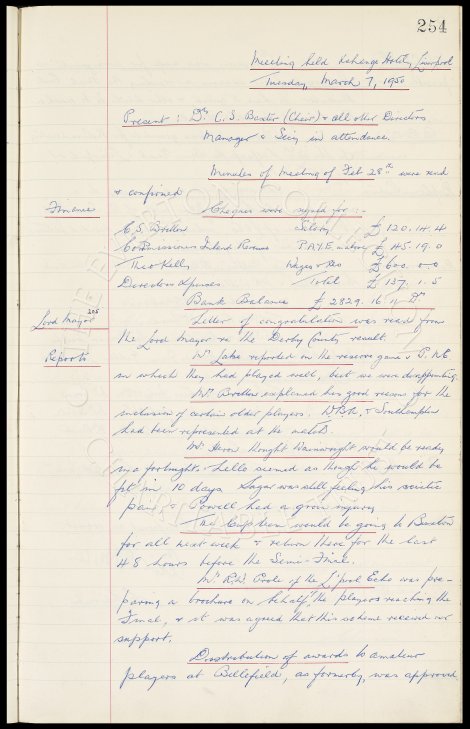 254
Meeting held Xchange Hotel, Liverpool
Tuesday, March 7, 1950
Present: Dr. C. S. Baxter (Chair) & all other Directors
Manager & Secy in attendance.
Minutes of Meeting of Feb 28th were read
& confirmed
Finance Cheques were signed for:-
C. S. Britton Salary £ 120. 14. 4
Commissioners Inland Revenue P.A.Y.E. £ 145. 19. 0
Theo Kelly Wages & £ 600. 0. 0
Directors Xpenses Total £ 137. 1. 5
Bank Balance £ 2829. 16. 11 Dr
Lord Mayor Letter of congratulation was read from
the Lord Mayor re the Derby County result.
Reports Mr. Lake reported on the reserve game v P.N.E
in which they had played well, but we were disappointing.
Mr Britton explained his good reasons for the
inclusion of certain older players. W.B.A. & Southampton
had been represented at the match.
Mr. Heron thought Wainwright would be ready
in a fortnight & seemed as though he would be
fit in 10 days Sagar was still feeling his sciatic
pain & Powell had a groin injury
The Cup team would be going to Buxton
for all next week & return there for the last
48 hours before the Semi-Final.
Mr R.H. of the L'pool Echo was pre-
paring a brochure on behalf of the players reaching the
Final, & it was agreed that this scheme received our
support.
Distribution of awards to amateur
players at Bellefield, as formerly, was approved